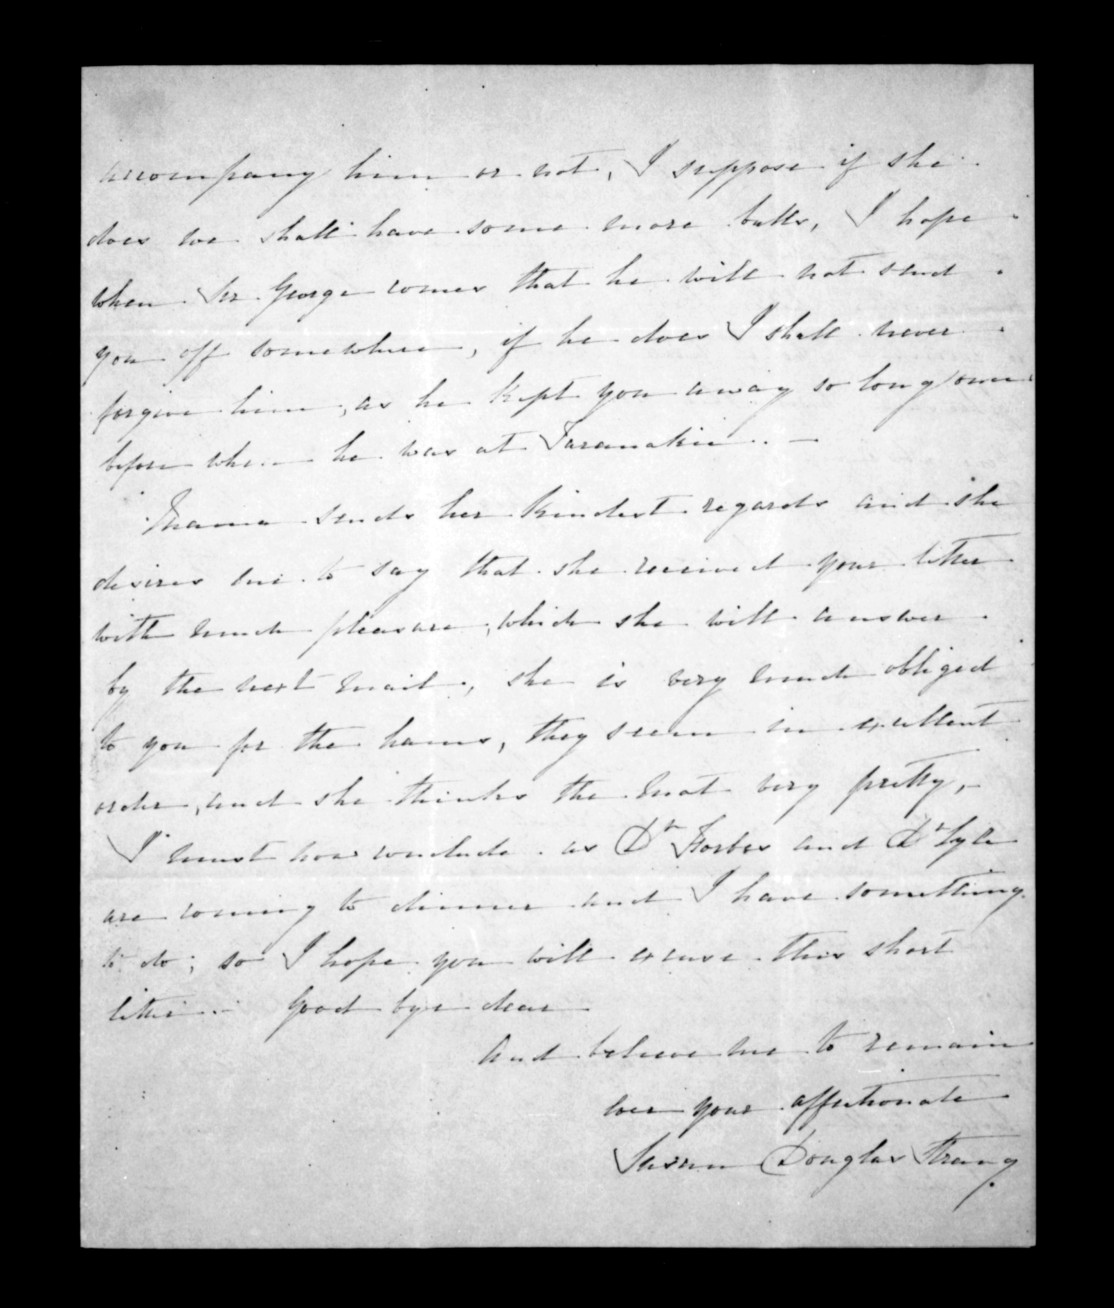 accompany him or not, I suppose if she
does we shall have some more balls, I hope
when Sir George comes that he will not send
you off somewhere, if he does I shall never
forgive him, as he kept you away so long once
before when he was at Taranakie. —
Mama sends her kindest regards and she
desires me to say that she received your letter
with much pleasure, which she will answer
by the next mail, she is very much obliged
to you for the hams, they seem in excellent
order, and she thinks the mat very pretty,
I must now conclude as Dr Forbes and Dr Lyle
are coming to dinner and I have something
to do; so I hope you will excuse this short
letter. Good bye dear
And believe me to remain
ever your affectionate
Susan Douglas Strang